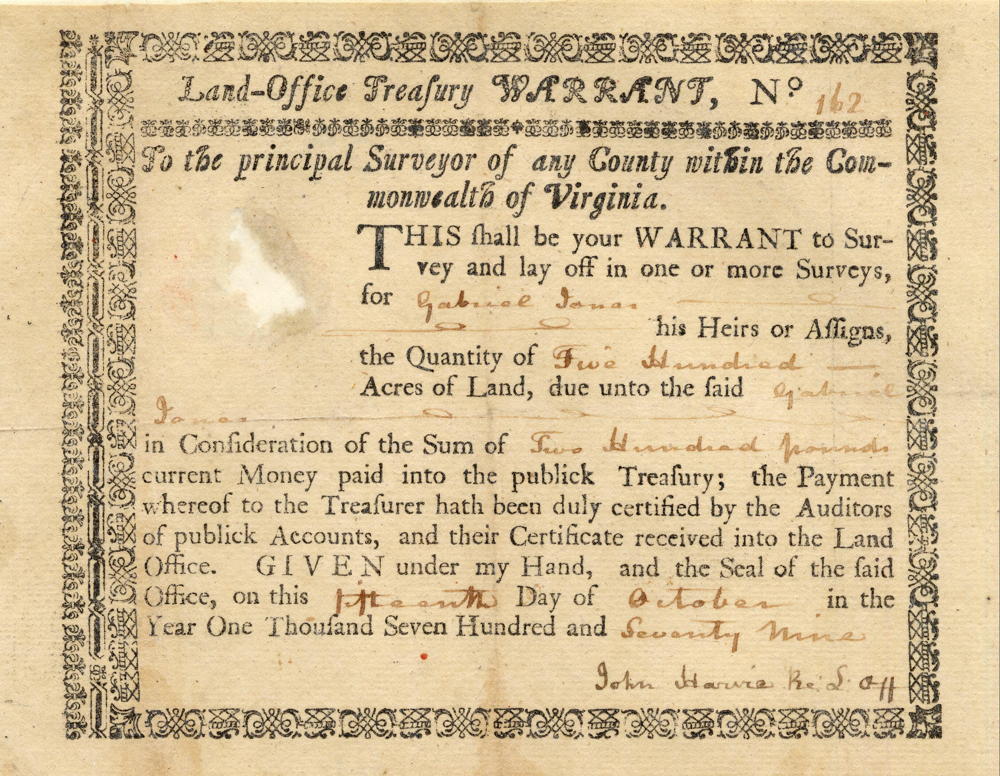 Land-Office Treaſury WARRANT, Nº 162
To the principal Surveyor of any County within the Com-
monwealth of Virginia.
THIS ſhall be your WARRANT to Sur-
vey and lay off in one or more Surveys,
for Gabriel Jones
his Heirs or Aſſigns,
the Quantity of Five Hundred
Acres of Land, due unto the ſaid Gabriel
Jones
in Conſideration of the Sum of Two Hundred pounds
current Money paid into the publick Treaſury; the Payment
whereof to the Treaſurer hath been duly certified by the Auditors
of publick Accounts, and their Certificate received into the Land
Office. GIVEN under my Hand, and the Seal of the ſaid
Office, on this fifteenth Day of October in the
Year One Thouſand Seven Hundred and Seventy Nine
John Harvie Re. L Off